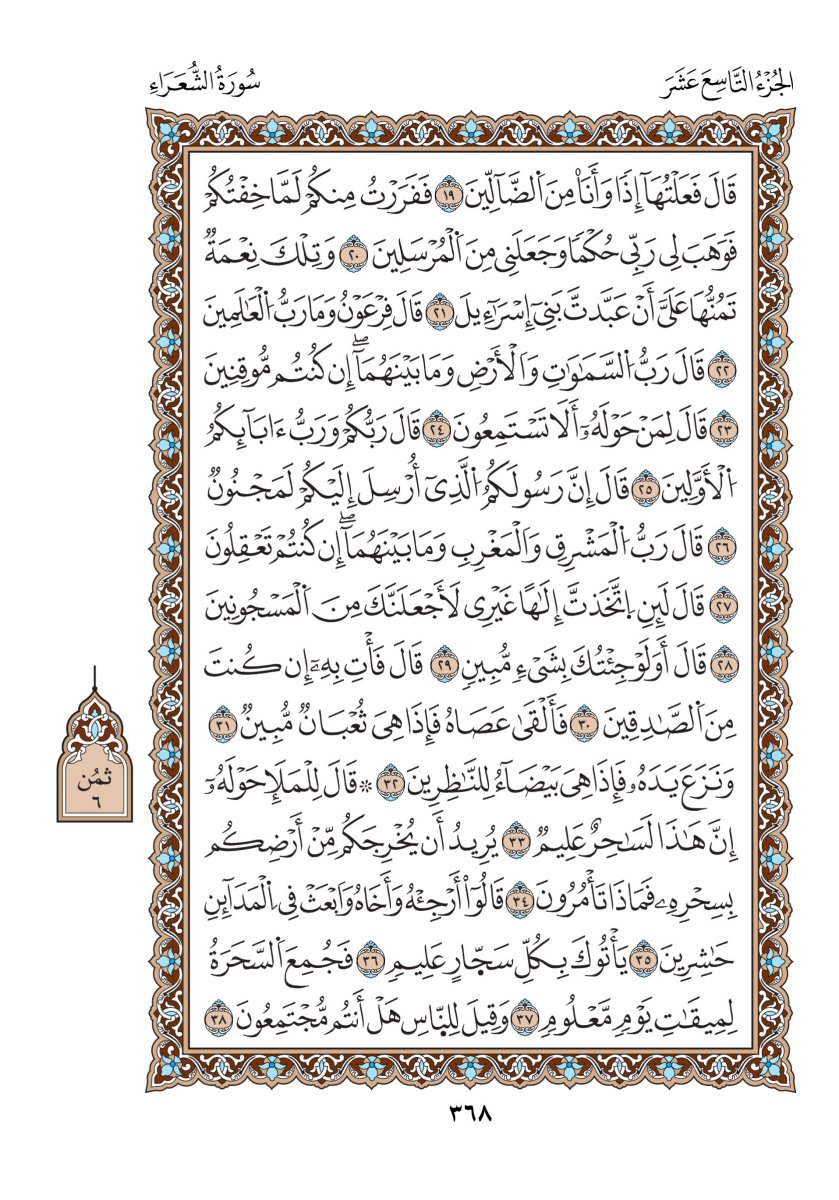 الجُزْءُ التَّاسِعَ عَشَرَ
سُورَةُ الشُّعَرَاءِ
قَالَ فَعَلْتُهَآ إِذٗا وَأَنَا۠ مِنَ اَ۬لضَّآلِّينَ ١٩ فَفَرَرْتُ مِنكُمْ لَمَّا خِفْتُكُمْ
فَوَهَبَ لِي رَبِّي حُكْمٗا وَجَعَلَنِي مِنَ اَ۬لْمُرْسَلِينَ ٢٠ وَتِلْكَ نِعْمَةٞ
تَمُنُّهَا عَلَيَّ أَنْ عَبَّدتَّ بَنِيٓ إِسْرَآءِيلَ ٢١ قَالَ فِرْعَوْنُ وَمَا رَبُّ اُ۬لْعَٰلَمِينَ
٢٢ قَالَ رَبُّ اُ۬لسَّمَٰوَٰتِ وَالْأَرْضِ وَمَا بَيْنَهُمَآۖ إِن كُنتُم مُّوقِنِينَ
٢٣ قَالَ لِمَنْ حَوْلَهُۥٓ أَلَا تَسْتَمِعُونَ ٢٤ قَالَ رَبُّكُمْ وَرَبُّ ءَابَآئِكُمُ
اُ۬لْأَوَّلِينَ ٢٥ قَالَ إِنَّ رَسُولَكُمُ اُ۬لَّذِيٓ أُرْسِلَ إِلَيْكُمْ لَمَجْنُونٞ
٢٦ قَالَ رَبُّ اُ۬لْمَشْرِقِ وَالْمَغْرِبِ وَمَا بَيْنَهُمَآۖ إِن كُنتُمْ تَعْقِلُونَ
٢٧ قَالَ لَئِنِ اِ۪تَّخَذتَّ إِلَٰهًا غَيْرِي لَأَجْعَلَنَّكَ مِنَ اَ۬لْمَسْجُونِينَ
٢٨ قَالَ أَوَلَوْ جِئْتُكَ بِشَيْءٖ مُّبِينٖ ٢٩ قَالَ فَأْتِ بِهِۦٓ إِن كُنتَ
مِنَ اَ۬لصَّٰدِقِينَ ٣٠ فَأَلْقَىٰ عَصَاهُ فَإِذَا هِيَ ثُعْبَانٞ مُّبِينٞ ٣١
وَنَزَعَ يَدَهُۥ فَإِذَا هِيَ بَيْضَآءُ لِلنَّٰظِرِينَ ٣٢ ۞ قَالَ لِلْمَلَإِ حَوْلَهُۥٓ
إِنَّ هَٰذَا لَسَٰحِرٌ عَلِيمٞ ٣٣ يُرِيدُ أَن يُخْرِجَكُم مِّنْ أَرْضِكُم
بِسِحْرِهِۦ فَمَاذَا تَأْمُرُونَ ٣٤ قَالُوٓاْ أَرْجِئْهُ وَأَخَاهُ وَابْعَثْ فِي اِ۬لْمَدَآئِنِ
حَٰشِرِينَ ٣٥ يَأْتُوكَ بِكُلِّ سَحَّارٍ عَلِيمٖ ٣٦ فَجُمِعَ اَ۬لسَّحَرَةُ
لِمِيقَٰتِ يَوْمٖ مَّعْلُومٖ ٣٧ وَقِيلَ لِلنَّاسِ هَلْ أَنتُم مُّجْتَمِعُونَ ٣٨
ثمُن
٦
٣٦٨